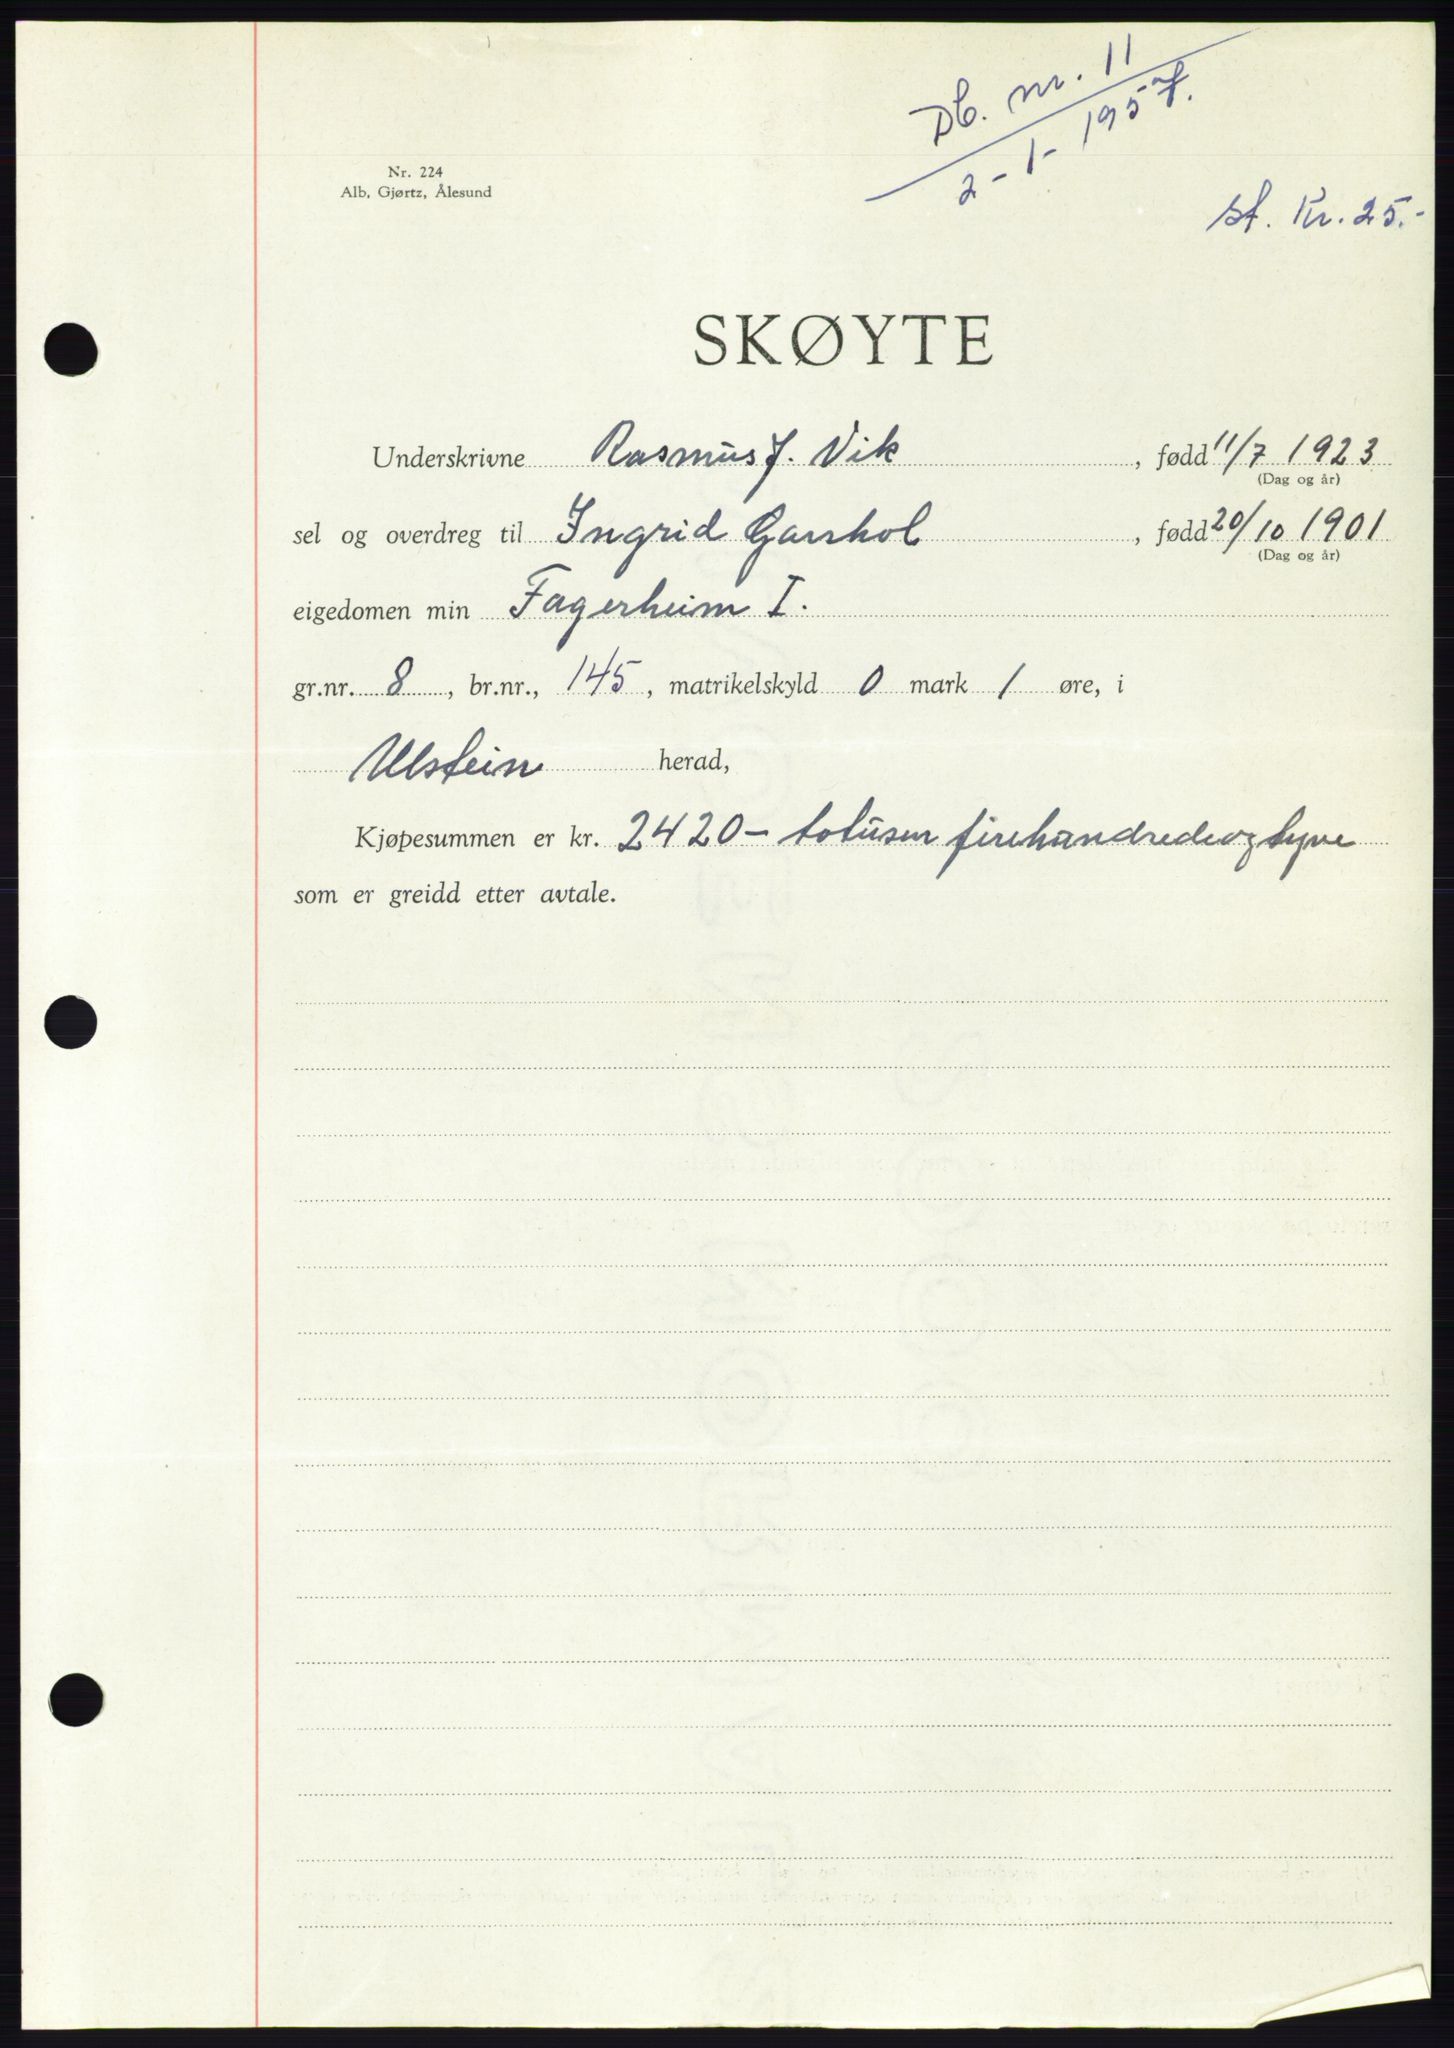 Db. nr. 11
2-1-1957.
st. Kr. 25.-
Nr. 224
Alb. Gjørtz, Ålesund
SKØYTE
Underskrivne Rasmus J. Vik, fødd 11/7 1923
(Dag og år)
sel og overdreg til Ingrid Garshol, fødd 20/10 1901
(Dag og år)
eigedomen min Fagerheim I.
gr.nr. 8, br.nr., 145, matrikelskyld 0 mark 1 øre, i
Ulstein herad,
Kjøpesummen er kr. 2420- totusen firehundredeogtyve
som er greidd etter avtale.